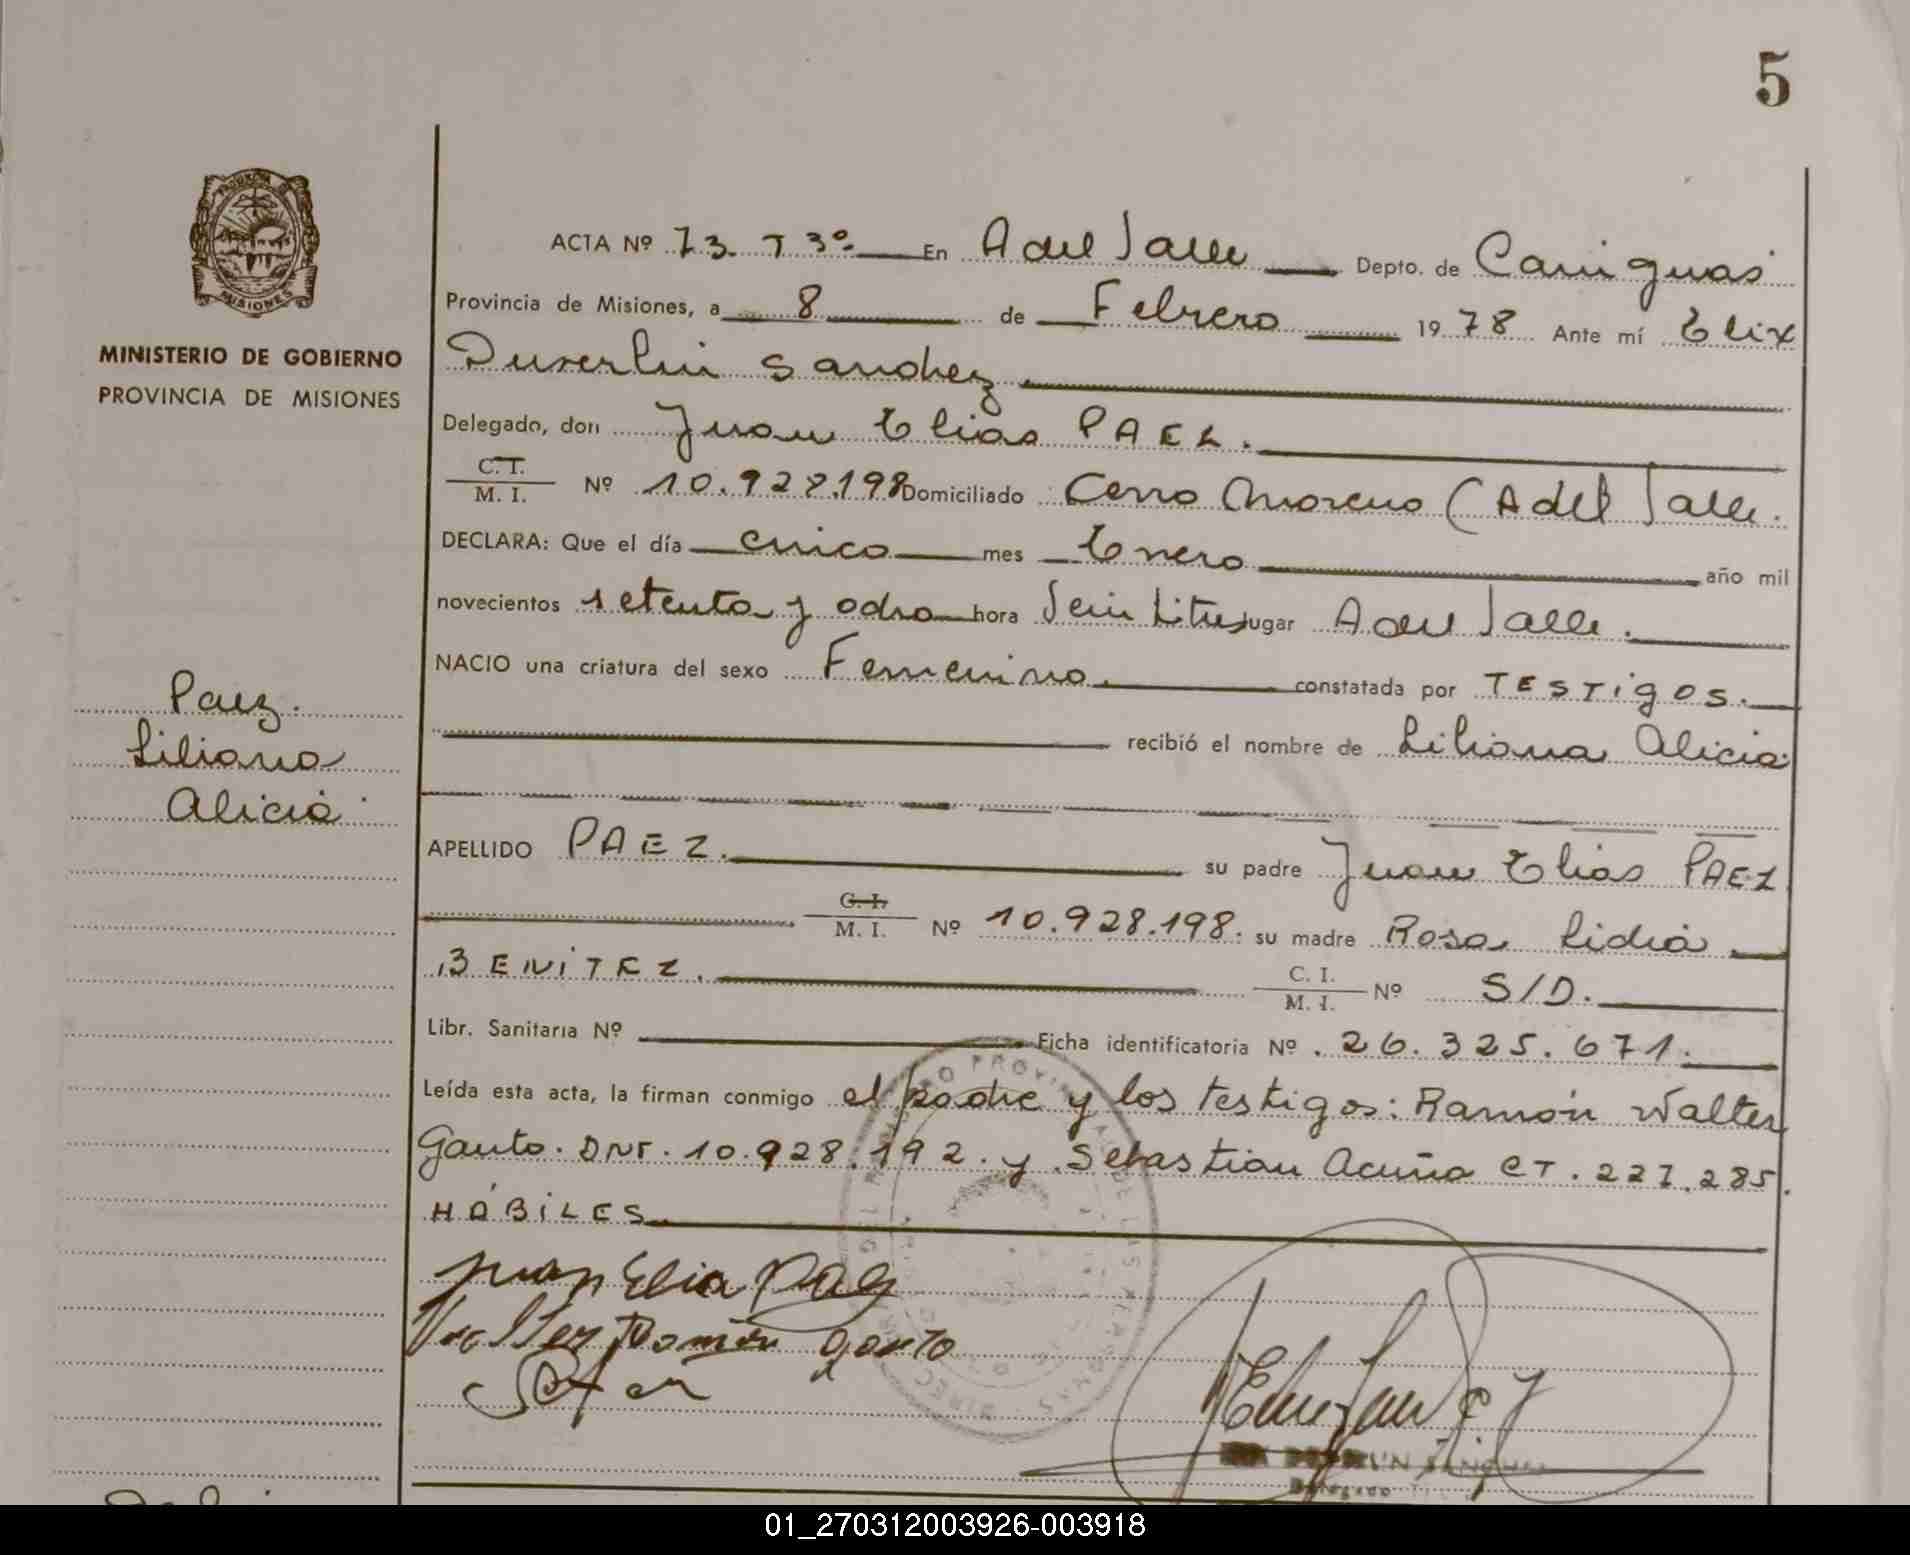 5
PROVINCIA DE
MISIONES
MINISTERIO DE GOBIERNO
PROVINCIA DE MISIONES
ACTA Nº 73 T 3º En A del Valle Depto. de Cainguas
Provincia de Misiones, a 8 de Febrero 1978 Ante mí Elix
Duverlin Sanchez
Delegado, don Juan Elias PAEZ.
C.I. M. I. Nº 10.928.198 Domiciliado Cerro Moreno (A del Valle.
DECLARA: Que el día cinco mes Enero año mil
novecientos setenta y ocho hora lugar A del Valle.
NACIO una criatura del sexo Femenino constatada por TESTIGOS.
recibió el nombre de Liliana Alicia
APELLIDO PAEZ. su padre Juan Elias PAEZ
C. I. M. I. Nº 10.928.198. su madre Rosa Lidia
BENITEZ. C. I. M. I. Nº S/D.
Libr. Sanitaria Nº Ficha identificatoria Nº 26.325.671.
Leída esta acta, la firman conmigo el padre y los testigos: Ramón Walter
Gauto. DNI. 10.928.192. y Sebastian Acuña CI. 227.285.
HÁBILES
Paez.
Liliana
Alicia
Juan Elia Paez
Walter Ramón Gauto
Delegado
01_270312003926-003918